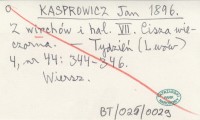 KASPROWICZ Jan 1896.
Z wirchów i hal. VII. Cisza wie-
czorna. — Tydzień (Lwów)
4, nr 44: 344-346.
Wiersz.
BT/025/0029